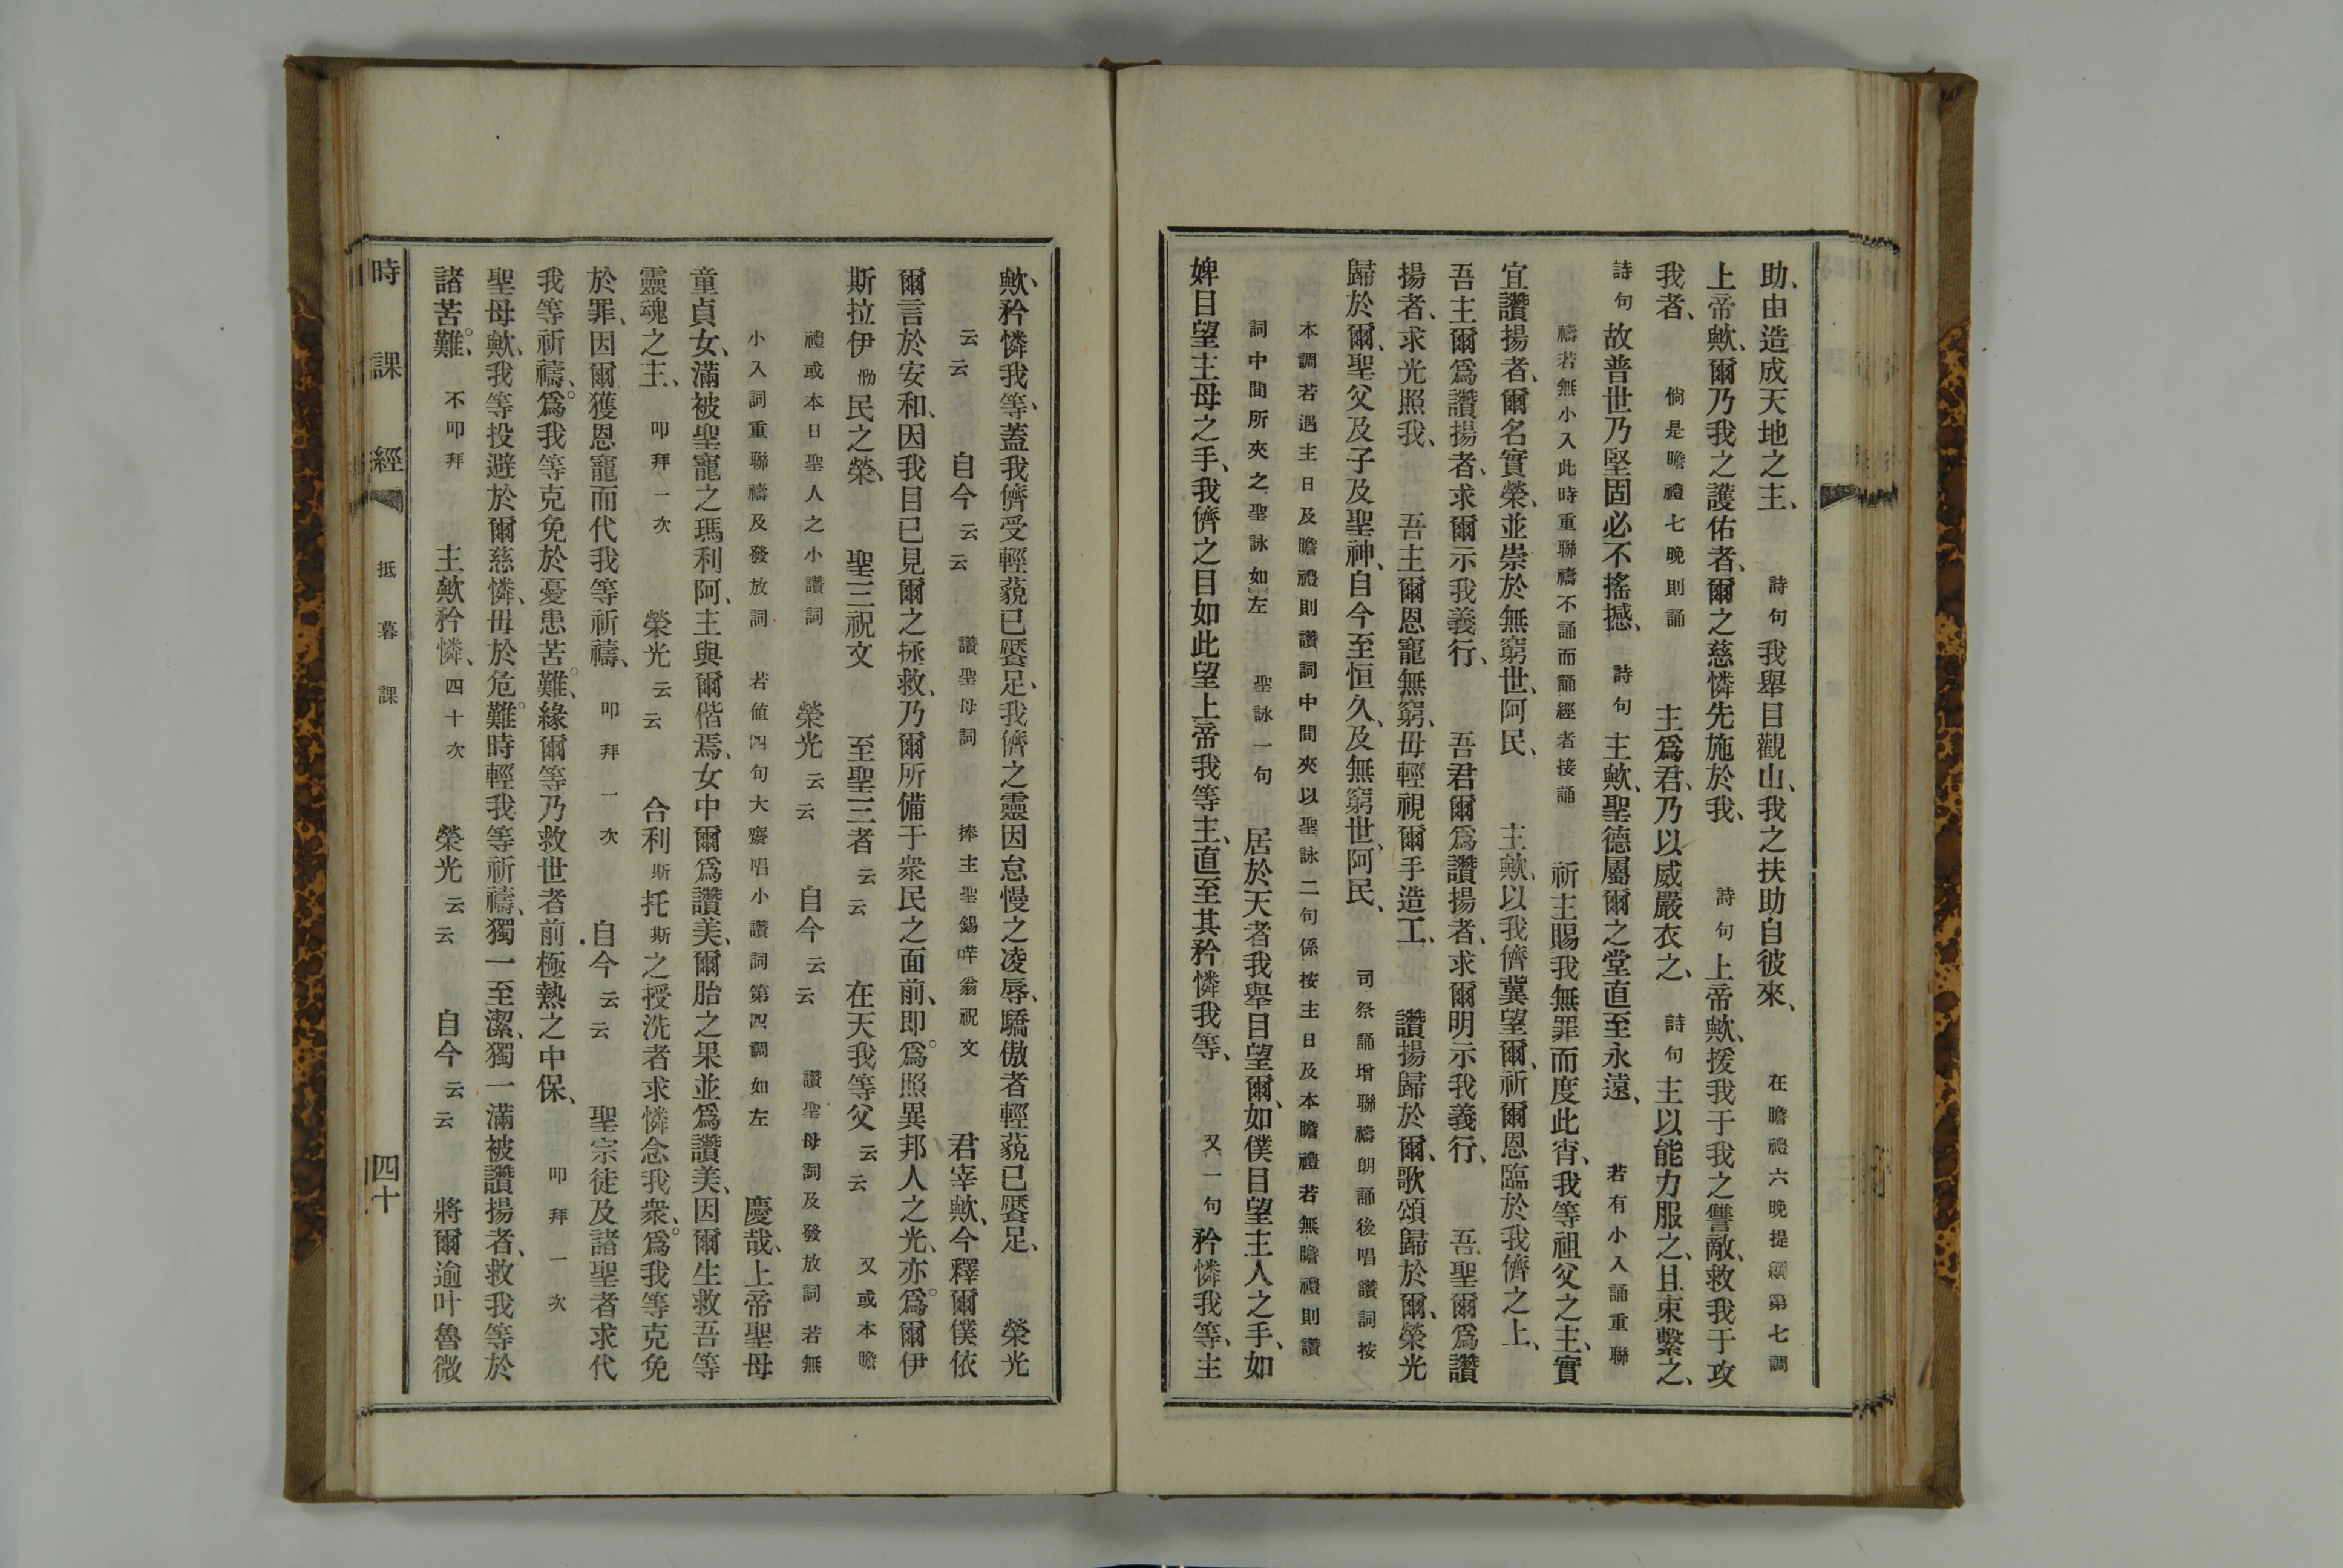 助、由造成天地之主、 詩句 我舉目觀山、我之扶助自彼來、 在瞻禮六晚提綱第七調
上帝歟、爾乃我之護佑者、爾之慈憐先施於我、 詩句 上帝歟、援我于我之讐敵、救我于攻
我者、 倘是瞻禮七晚則誦 主爲君、乃以威嚴衣之、 詩句 主以能力服之、且束繫之、
詩句 故普世乃堅固必不搖撼、 詩句 主歟、聖德屬爾之堂直至永遠、 若有小入誦重聯
禱若無小入此時重聯禱不誦而誦經者接誦 祈主賜我無罪而度此宵、我等祖父之主、實
宜讚揚者、爾名實榮、並崇於無窮世、阿民、 主歟、以我儕冀望爾、祈爾恩臨於我儕之上、
吾主爾爲讚揚者、求爾示我義行、 吾君爾爲讚揚者、求爾明示我義行、 吾聖爾爲讚
揚者、求光照我、 吾主爾恩寵無窮、毋輕視爾手造工、 讚揚歸於爾、歌頌歸於爾、榮光
歸於爾、聖父及子及聖神、自今至恒久、及無窮世、阿民、 司祭誦增聯禱朗誦後唱讚詞按
本調若遇主日及瞻禮則讚詞中間夾以聖詠二句係按主日及本瞻禮若無瞻禮則讚
詞中間所夾之聖詠如左 聖詠一句 居於天者我舉目望爾、如僕目望主人之手、如
婢目望主母之手、我儕之目如此望上帝我等主、直至其矜憐我等、 又一句 矜憐我等、主
歟、矜憐我等、蓋我儕受輕藐已饜足、我儕之靈因怠慢之凌辱、驕傲者輕藐已饜足、 榮光
云云 自今云云 讚聖母詞 捧主聖錫哶翁祝文 君宰歟、今釋爾僕依
爾言於安和、因我目已見爾之拯救、乃爾所備于衆民之面前、即爲照異邦人之光、亦爲爾伊
斯拉伊勒民之榮、 聖三祝文 至聖三者云云 在天我等父云云 又或本瞻
禮或本日聖人之小讚詞 榮光云云 自今云云 讚聖母詞及發放詞若無
小入詞重聯禱及發放詞 若値四句大齋唱小讚詞第四調如左 慶哉、上帝聖母
童貞女、滿被聖寵之瑪利阿、主與爾偕焉、女中爾爲讚美、爾胎之果並爲讚美、因爾生救吾等
靈魂之主、 叩拜一次 榮光云云 合利斯托斯之授洗者求憐念我衆、爲我等克免
於罪、因爾獲恩寵而代我等祈禱、 叩拜一次 自今云云 聖宗徒及諸聖者求代
我等祈禱、爲我等克免於憂患苦難、緣爾等乃救世者前極熱之中保、 叩拜一次
聖母歟、我等投避於爾慈憐、毋於危難時輕我等祈禱、獨一至潔、獨一滿被讚揚者、救我等於
諸苦難、 不叩拜 主歟矜憐、四十次 榮光云云 自今云云 將爾逾叶魯微
時課經 抵暮課 四十